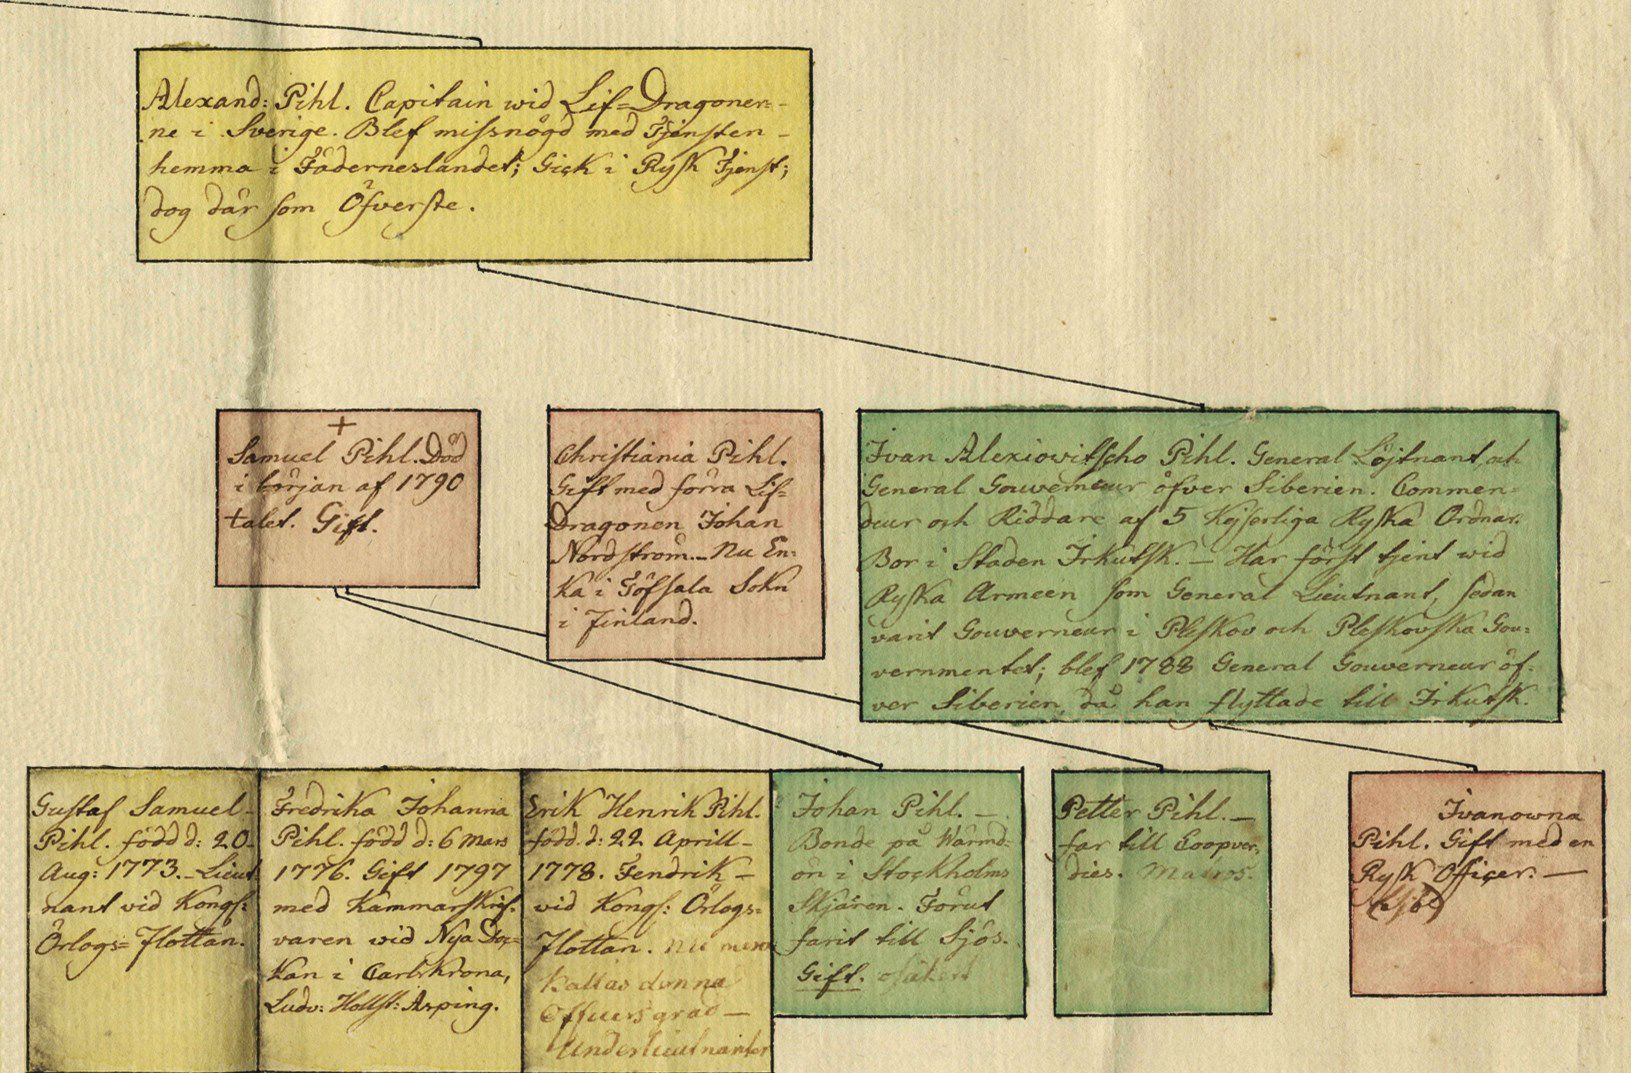 Alexand: Pihl. Capitain wid Lif=Dragoner-
ne i Sverige. Blef missnögd med Tjensten-
hemma i Fäderneslandet; Gick i Rysk Tjenst;
dog där som Öfverste.
+
Samuel Pihl. Död
i början af 1790
talet. Gift.
Christiania Pihl.
Gift med förra Lif=
Dragonen Johan
Nordström. - Nu En=
ka i Töfsala Sokn
i Finland.
Ivan Alexiowitscho Pihl. General Löjtnant, och
General Gouverneur öfver Siberien. Commen=
deur och Riddare af 5 Kejserliga Ryska Ordnar.
Bor i Staden Irkutsk. - Har först tjent wid
Ryska Armeen som General Lieutnant, sedan
varit Gouverneur i Pleskov och Pleskovska Gou=
vernmentet; blef 1788 General Gouverneur öf=
ver Siberien, då han flyttade till Irkutsk.
Gustaf Samuel
Pihl. född d: 20
Aug: 1773. - Lieut
nant vid Kongs:
Örlogs=Flottan.
Fredrika Johanna
Pihl. född d: 6 Mars
1776. Gift 1797
med Kammarskrif=
varen wid Nya Doc=
kan i Carlskrona,
Ludv: Hollst: Asping.
Erik Henrik Pihl.
född. d: 22 Aprill-
1778. Fendrik -
vid Kongs: Örlogs=
Flottan. Nu mera
kallas denna
Officers grad -
Underlieutnanter
Johan Pihl. -
Bonde på Wärmd=
ön i Stockholms
Skjären. Förut
farit till Sjös.
Gift. osäkert
Petter Pihl. -
far till Coopver=
dies. Matros.
Ivanowna
Pihl. Gift med en
Rysk Officer. -